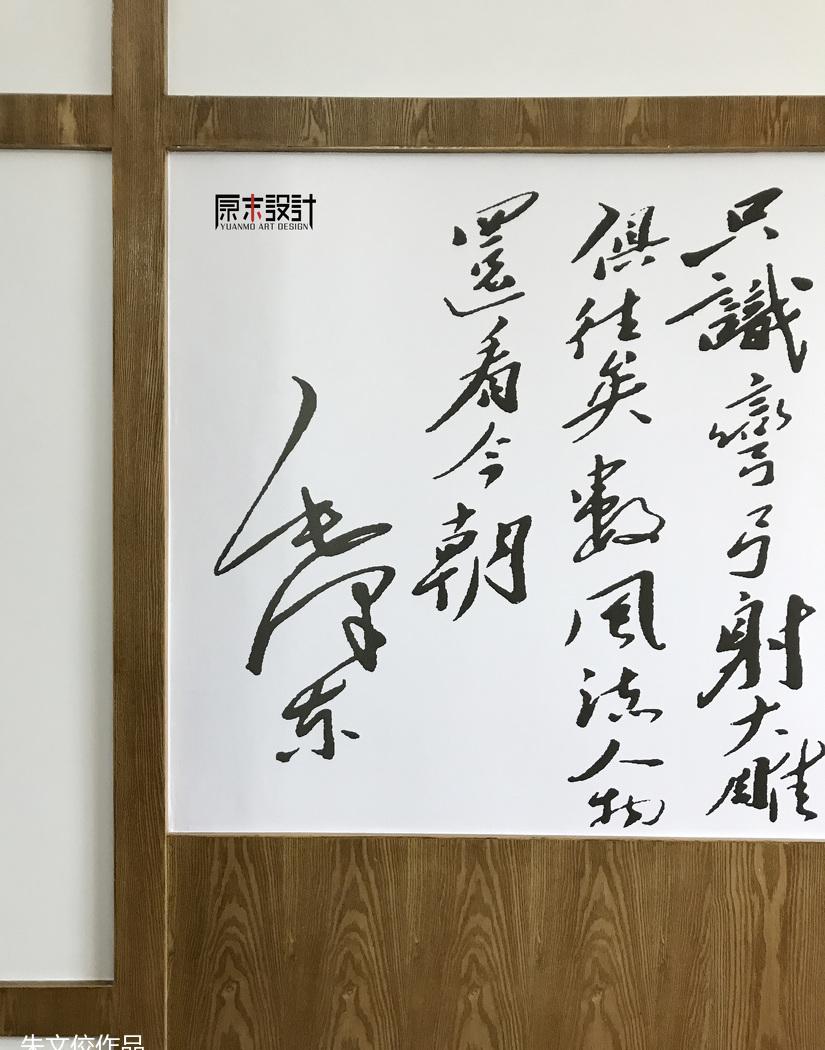 只識彎弓射大雕
俱往矣數風流人物
還看今朝
毛澤东
原末設計
YUANMO ART DESIGN
朱文佼作品